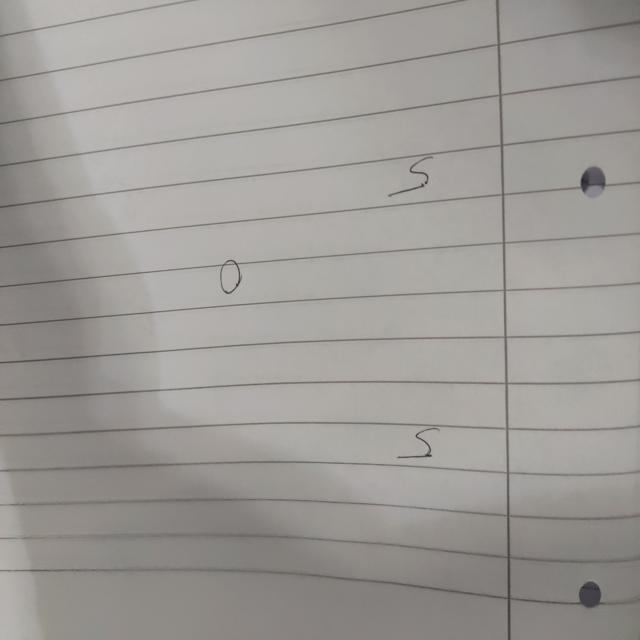 S
O
S